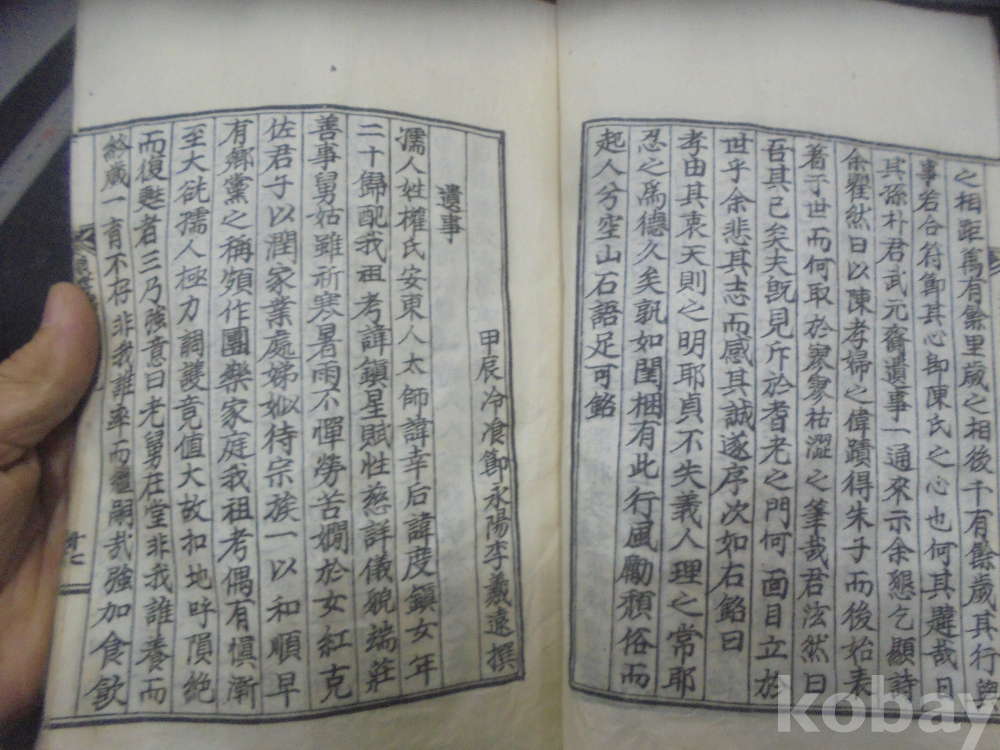 之相距萬有餘里歲之相後千有餘歲其行與
事若合符節其心卽陳氏之心也何其韙哉日
其孫朴君武元齎遺事一通來示余懇乞顯詩
余瞿然曰以陳孝婦之偉蹟得朱子而後始表
著于世而何取於廖廖枯澀之筆哉君泫然曰
吾其已矣夫旣見斥於耆老之門何面目立於
世乎余悲其志而感其誠遂序次如右銘曰
孝由其衷天則之明耶貞不失義人理之常耶
忍之爲德久矣孰如閨梱有此行風勵頹俗而
起人兮空山石語足可銘
甲辰冷飡節永陽李羲遠撰
遺事
孺人姓權氏安東人太師諱幸后諱度鎭女年
二十歸配我祖考諱鎭星賦性慈詳儀貌端莊
善事舅姑雖祈寒暑雨不憚勞苦嫺於女紅克
佐君子以潤家業處娣姒待宗族一以和順早
有鄕黨之稱頗作團欒家庭我祖考偶有愼漸
至大㱃孺人極力調護竟値大故扣地呼隕絶
而復甦者三乃強意曰老舅在堂非我誰養而
給歲一育不存非我誰率而繼嗣哉強加食飮
廿七
kobay